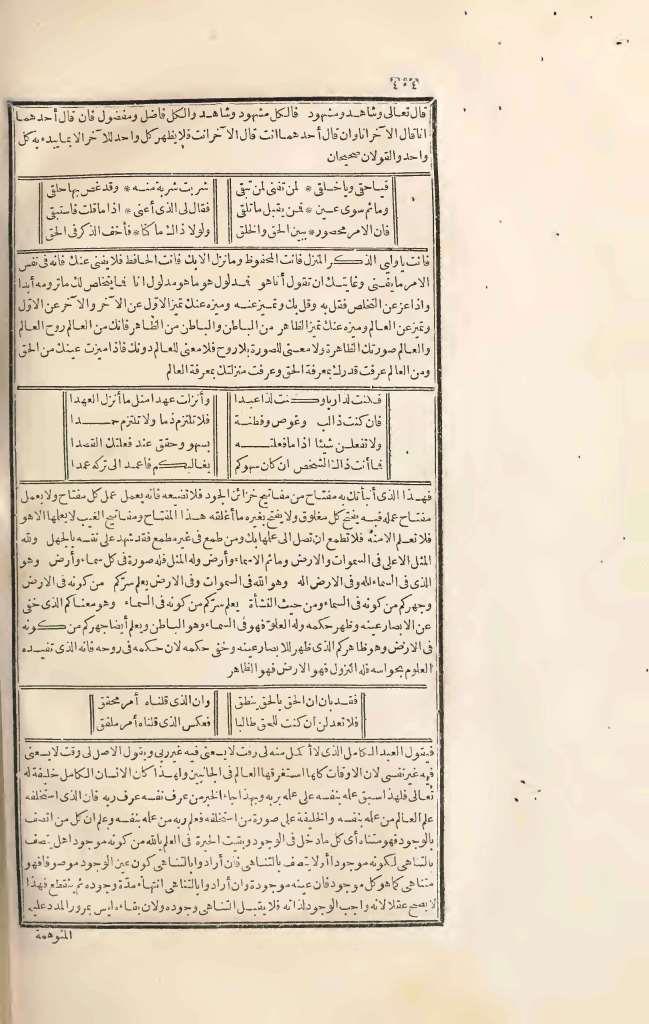 ٤٠٤
قال تعالى وشاهد ومشهود فالكل مشهود وشاهد والكل فاضل ومفضول فان قال أحدهما
انا قال الآخر انا وان قال أحدهما انت قال الآخر انت فلا يظهر كل واحد للآخر الا بما يبدء به كل
واحد والقولان صحيحان
فيا حقي ويا خلقي * لمن تفنى لمن تبقي شربت شربة منه * وقد غص بها حلقي
وما ثم سوى عين * فمن يقبل ما تلقي فقال لي الذي أعني * اذا ما قلت فاستبقي
فان الامر محصور * بين الحق والخلق ولولا ذاك ما كنا * فأخف الذكر في الحق
فانت يا وليي الذكر المنزل فانت المحفوظ وما نزل الا بك فانت الحافظ فلا يفني عنك فانه في نفس
الامر ما يفني وغايتك ان تقول أنا هو فمدلول هو ما هو مدلول انا فما يتخلص لك ما ترومه أبدا
واذا عز عن التخلص فقل به وقل بك وتميز عنه وميزه عنك تميز الاول عن الآخر والآخر عن الاول
وتميز عن العالم وميزه عنك تميز الظاهر من الباطن والباطن من الظاهر فانك من العالم روح العالم
والعالم صورتك الظاهرة ولا معنى للصورة بلا روح فلا معنى للعالم دونك فاذا ميزت عينك من الحق
ومن العالم عرفت قدرك بمعرفة الحق وعرفت منزلتك بمعرفة العالم
فكنت لذا ربا وكنت لذا عبدا وأنزلت عهدا مثل ما أنزل العهدا
فان كنت ذا لب وغوص وفطنة فلا تلتزم ذما ولا تلتزم حمدا
ولا تفعلن شيئا اذا ما فعلته بسهو وحقق عند فعلتك القصدا
فما أنت ذاك الشخص ان كان سهوكم يغالبكم فاعمد الى تركه عمدا
فهذا الذي أنبأتك به مفتاح من مفاتيح خزائن الجود فلا تضيعه فانه يعمل عمل كل مفتاح ولا يعمل
مفتاح عمله فبه يفتح كل مغلوق ولا يفتح بغيره ما أغلقه هذا المفتاح ومفاتيح الغيب لا يعلمها الا هو
فلا تعلم الا منه فلا تطمع ان تصل الى علمها بك ومن طمع في غير مطمع فقد شهد على نفسه بالجهل ولله
المثل الاعلى في السموات والارض وما ثم الا سماء وأرض وله المثل فله صورة في كل سماء وأرض وهو
الذي في السماء اله وفي الارض اله وهو الله في السموات وفي الارض يعلم سركم من كونه في الارض
وجهركم من كونه في السماء ومن حيث النشأة يعلم سركم من كونه في السماء وهو معناكم الذي خفى
عن الابصار عينه وظهر حكمه وله العلو فهو في السماء وهو الباطن ويعلم أيضا جهركم من كونه
في الارض وهو ظاهركم الذي ظهر للابصار عينه وخفى حكمه لان حكمه في روحه فانه الذي تفيده
العلوم بحواسه فله النزول فهو الارض فهو الظاهر
فقد بان ان الحق بالحق ينطق وان الذي قلناه أمر محقق
فلا تعدلن ان كنت للحق طالبا فعكس الذي قلناه أمر ملفق
فيقول العبد الكامل الذي لا أكمل منه لي وقت لا يسعني فيه غير ربي ويقول الاصل لي وقت لا يسعني
فيه غير نفسي لان الاوقات كلها استغرقها العالم في الجانبين ولهذا كان الانسان الكامل خليفة له
تعالى فلهذا سبق علمه بنفسه على علمه بربه وبهذا جاء الخبر من عرف نفسه عرف ربه فان الذي استخلفه
علم العالم من علمه بنفسه والخليفة على صورة من استخلفه فعلم ربه من علمه بنفسه وعلم ان كل من اتصف
بالوجود فهو متناه أي كل ما دخل في الوجود وبقيت الحيرة في العلم بالله من كونه موجودا هل يتصف
بالتناهي لكونه موجودا أولا يتصف بالتناهي فان أرادوا بالتناهي كون عين الوجود موصوفا فهو
متناهي كما هو كل موجود فان عينه موجودة وان أرادوا بالتناهي انتهاء مدة وجوده ثم ينقطع فهذا
لا يصح عقلا لانه واجب الوجود لذاته فلا يقبل التناهي وجوده ولان بقاءه ليس بمرور المدد عليه
المتوهمة